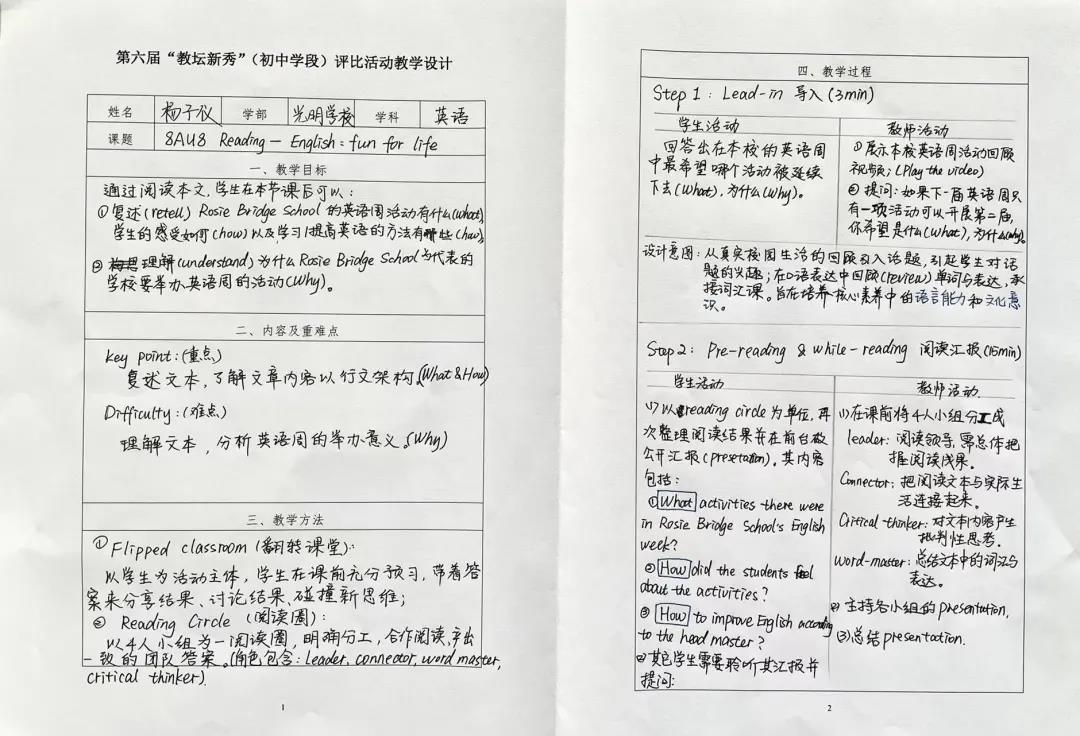 第六届“教坛新秀”（初中学段）评比活动教学设计
姓名 杨子仪 学部 光明学校 学科 英语
课题 8AU8 Reading — English: fun for life
一、教学目标
通过阅读本文，学生在本节课后可以：
①复述(retell) Rosie Bridge School的英语周活动有什么(what),
学生的感受如何(how)以及学习提高英语的方法有哪些(how),
②理解(understand)为什么Rosie Bridge School与代表的
学校要举办英语周的活动(Why)。
二、内容及重难点
key point:(重点)
复述文本，了解文章内容以行文架构。(What & How)
Difficulty:(难点)
理解文本，分析英语周的举办意义。(Why)
三、教学方法
① Flipped classroom (翻转课堂):
以学生为活动主体，学生在课前充分预习，带着答
案来分享结果、讨论结果、碰撞新思维；
② Reading Circle (阅读圈):
以4人小组为一阅读圈，明确分工，合作阅读，产出
一致的团队答案。(角色包含: leader, connector, word master,
critical thinker).
1
四、教学过程
Step 1: Lead-in 导入(3min)
学生活动
回答出在本校的英语周
中最希望哪个活动被延续
下去(What)，为什么(Why)。
教师活动
①展示本校英语周活动回顾
视频；(Play the video)
②提问：如果下一届英语周只
有一项活动可以开展第二届，
你希望是什么(What)，为什么(Why)。
设计意图：从真实校园生活的回顾引入话题，引起学生对话
题的兴趣；在口语表达中回顾(review)单词与表达，承
接词汇课。旨在培养核心素养中的语言能力和文化意
识。
Step 2: Pre-reading & while-reading 阅读汇报(15min)
学生活动
(1)以reading circle为单位，再
次整理阅读结果并在前台做
公开汇报(presetation)。其内容
包括：
①What activities there were
in Rosie Bridge School's English
week?
②How did the students feel
about the activities?
③How to improve English according
to the head master?
(2)其它学生需要聆听其汇报并
提问：
教师活动
(1)在课前将4人小组分工成
leader: 阅读领导，需总体把
握阅读成果。
Connector: 把阅读文本与实际生
活连接起来。
Critical thinker: 对文本内容产生
批判性思考。
word-master: 总结文本中的词汇与
表达。
(2)主持各小组的presentation,
(3)总结presentation.
2